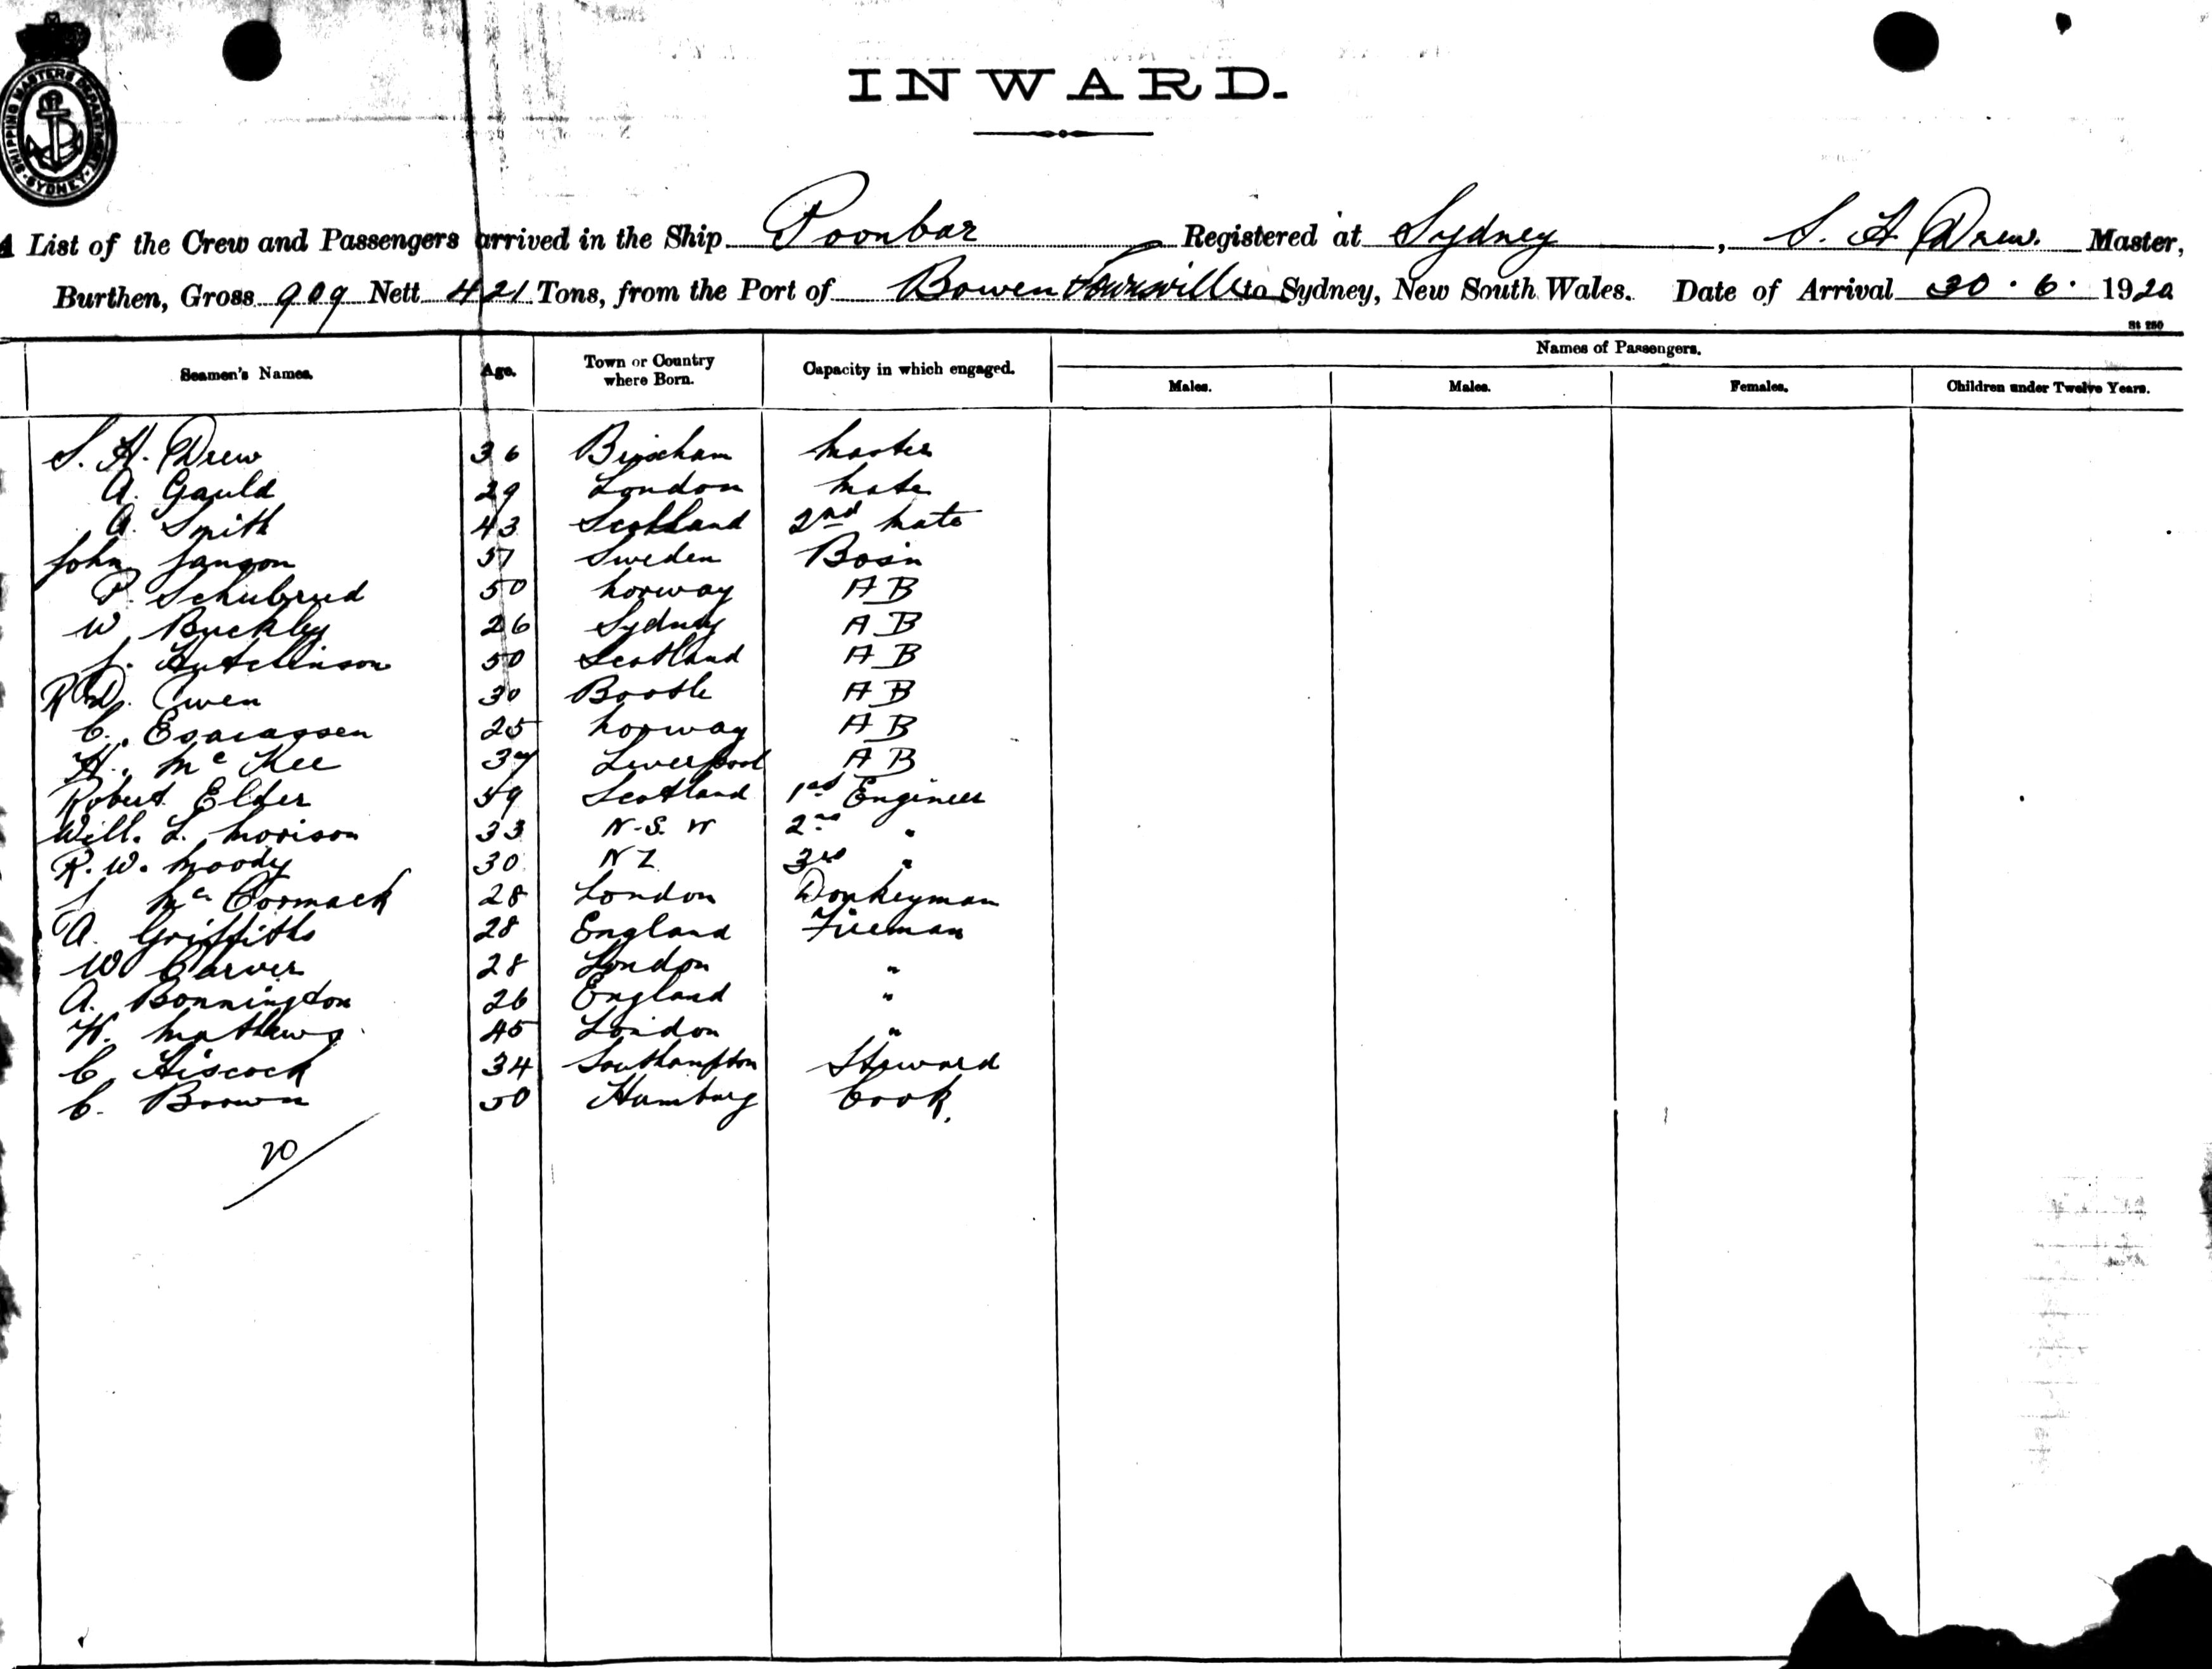 SHIPPING MASTERS DEPARTMENT SYDNEY
INWARD.
A List of the Crew and Passengers arrived in the Ship Poonbar Registered at Sydney, S. H. Drew. Master,
Burthen, Gross 909 Nett 421 Tons, from the Port of Bowen Townsville to Sydney, New South Wales. Date of Arrival 30.6.1920
St 280
Seamen's Names. Age. Town or Country where Born. Capacity in which engaged. Names of Passengers.
Males. Males. Females. Children under Twelve Years.
S. H. Drew 36 Brixham Master
A. Gauld 29 London Mate
A. Smith 43 Scotland 2nd Mate
John Janson 51 Sweden Bosn
P. Schubrud 50 Norway A B
W Buckley 26 Sydney A B
J. Hutchinson 50 Scotland A B
R. D. Owen 30 Bootle A B
C. Esaiassen 25 Norway A B
H. McKee 37 Liverpool A B
Robert Elder 59 Scotland 1st Engineer
Will. L. Morison 33 N.S.W 2nd "
R. W. Moody 30 N Z 3rd "
McCormack 28 London Donkeyman
A. Griffiths 28 England Fireman
W Carver 28 London "
A. Bonnington 26 England "
H. Mathews 45 London "
C. Hiscock 34 Southampton Steward
C. Brown 50 Hamburg Cook.
20